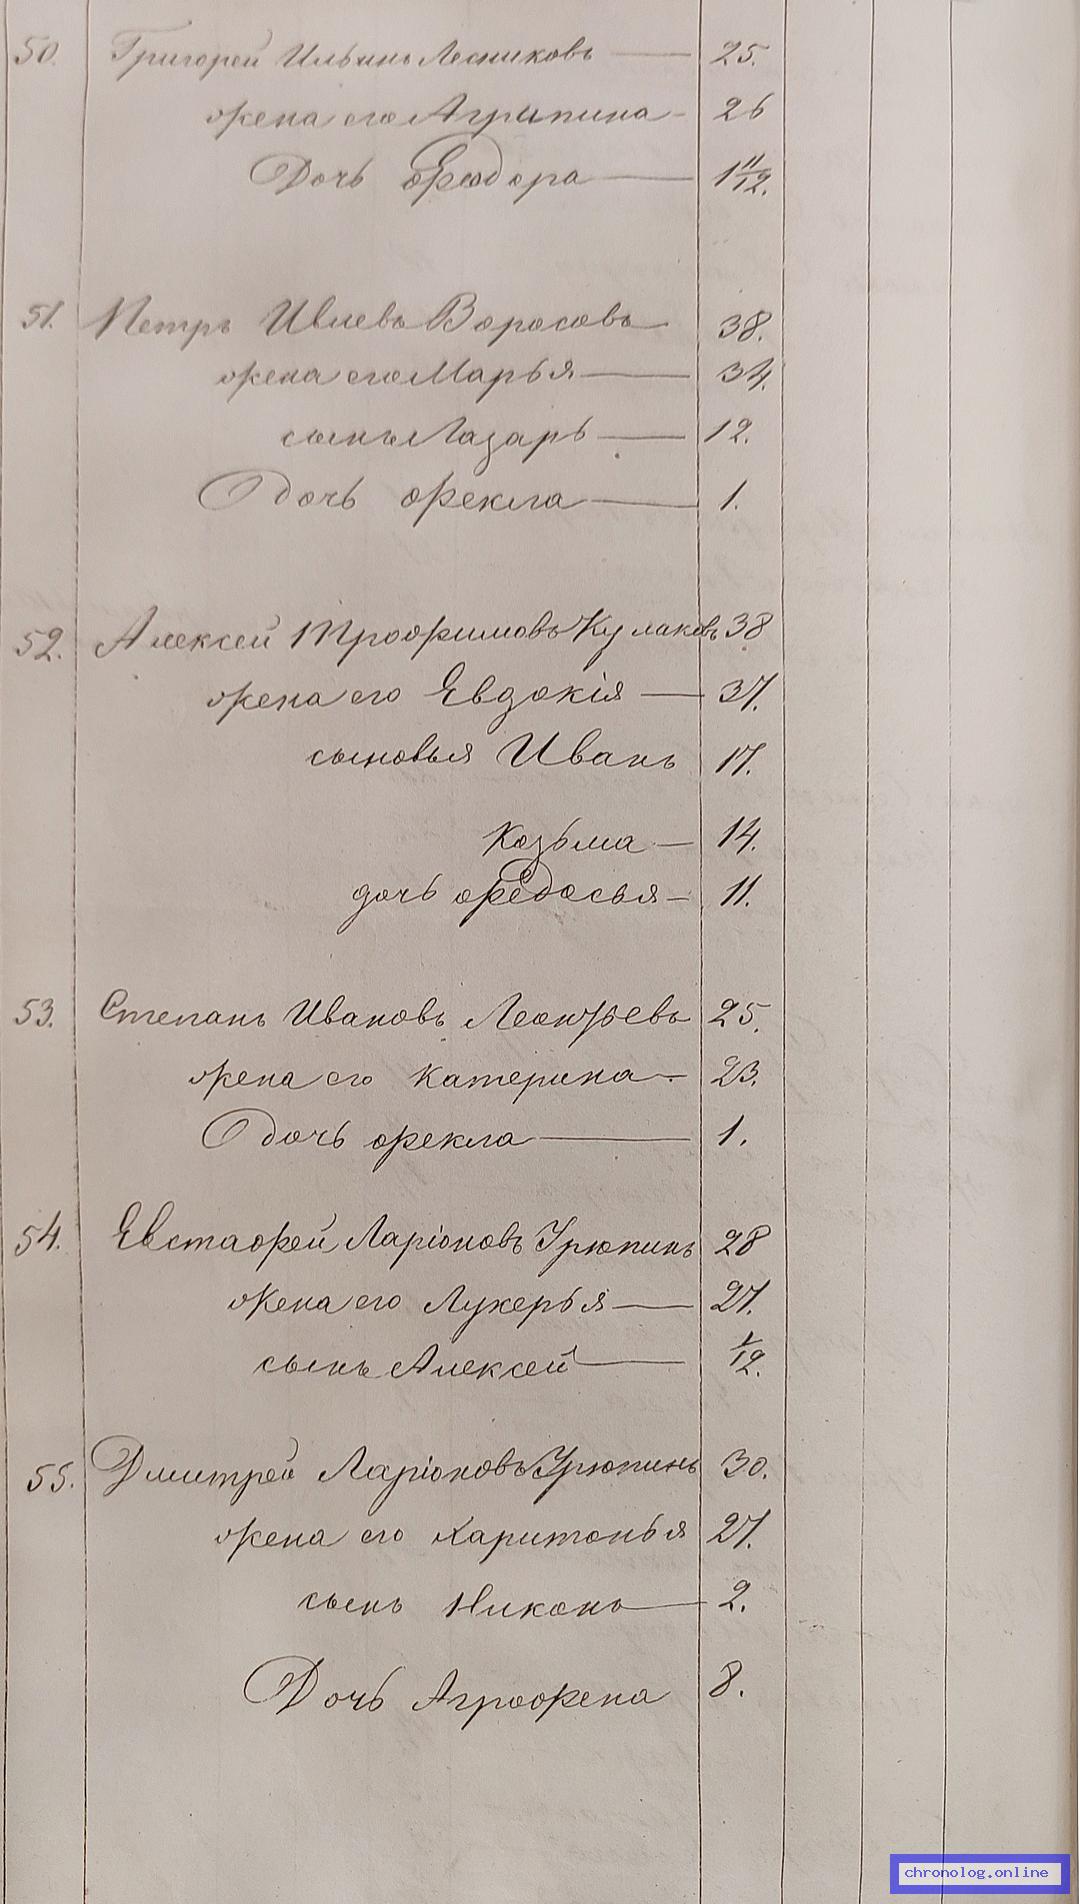 50. Григорей Ильинъ Лесниковъ — 25.
жена его Агрипина - 26
Дочь Феодора — 1 11/12.
51. Петръ Ивлевъ Воросовъ 38.
жена его Марья — 34.
сынъ Лазарь — 12.
дочь Фекла — 1.
52. Алексей Трофимовъ Кулаковъ 38
жена его Евдокія — 37.
сыновья Иванъ 17.
Козьма — 14.
дочь Федосья — 11.
53. Степанъ Ивановъ Леонтьевъ 25.
жена его Катерина — 23.
дочь Фекла — 1.
54. Евстафей Ларіоновъ Урюпинъ 28
жена его Лукерья — 27.
сынъ Алексей — 1/12.
55. Дмитрей Ларіоновъ Урюпинъ 30.
жена его Харитонья 27.
сынъ Никонъ — 2.
Дочь Аграфена 8.
chronolog.online